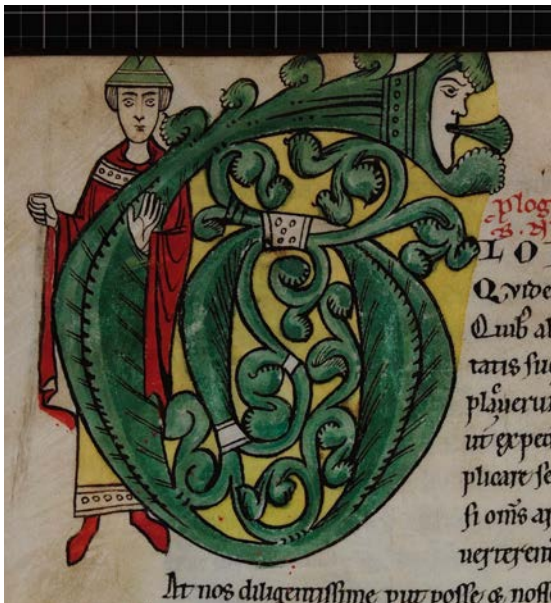 ꝓlog
S. A
L O
Quide
Quib᷒ a
tatis su
planeru
ut exper
plicare se
si om̅s ar
uerteren
At nos diligentissime put posse &̨ noss